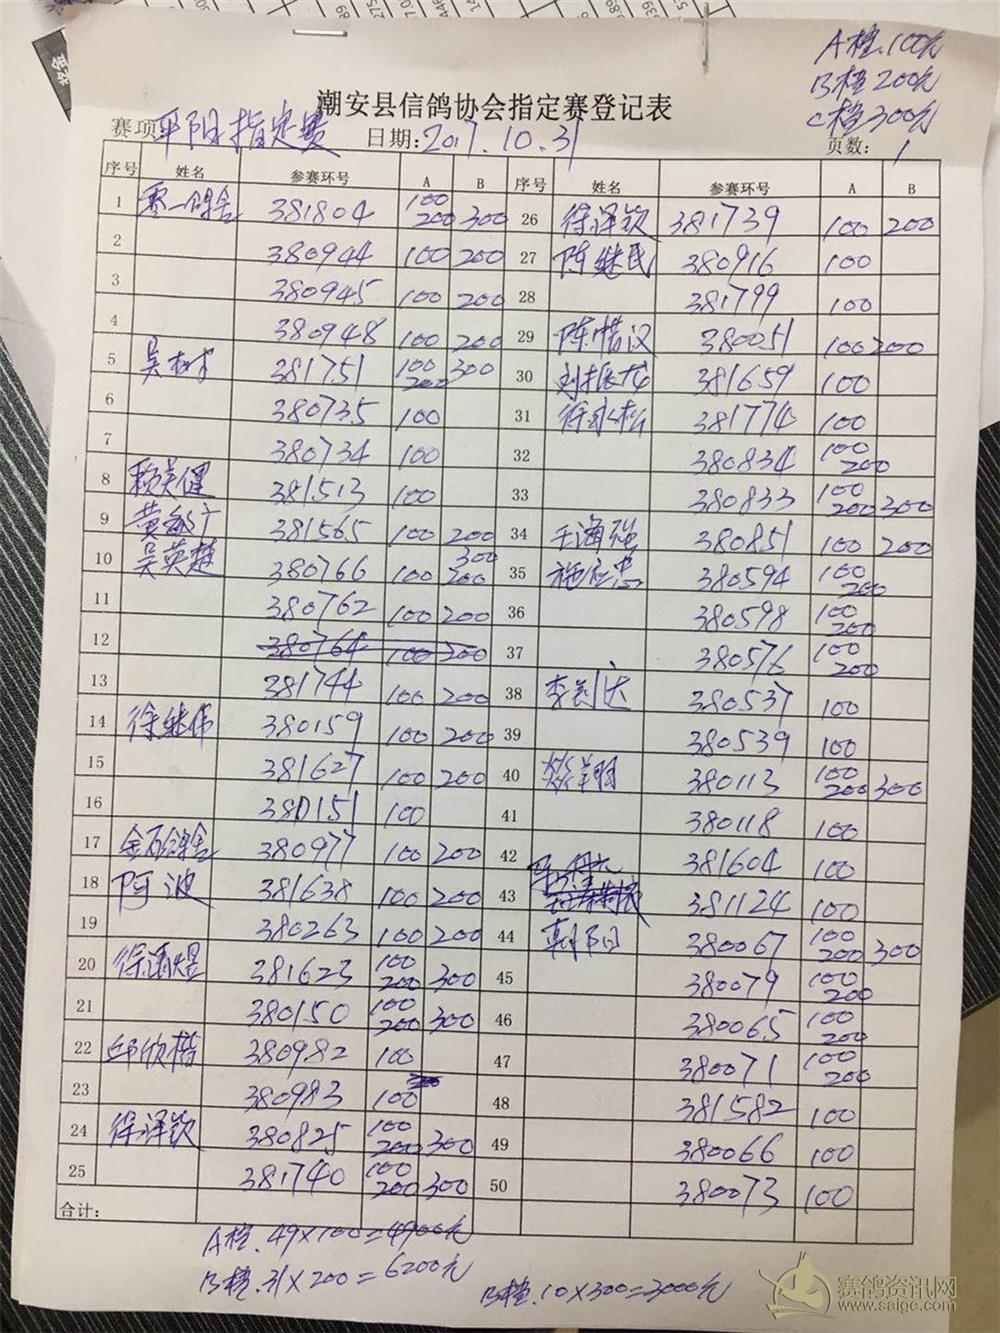 A档.100元
B档200元
C档300元
潮安县信鸽协会指定赛登记表
赛项 平阳指定赛 日期:2017.10.31 页数: 1
序号 姓名 参赛环号 A B 序号 姓名 参赛环号 A B
1 零一鸽舍 381804 100 200 300 26 徐泽钦 381739 100 200
2 380944 100 200 27 陈继民 380916 100
3 380945 100 200 28 381799 100
4 380948 100 200 29 陈惜汉 380051 100 200
5 吴树才 381751 100 200 300 30 刘振龙 381659 100
6 380735 100 31 徐永松 381774 100
7 380734 100 32 380834 100 200
8 赖美健 381513 100 33 380833 100 200 300
9 黄 381565 100 200 34 王海强 380851 100 200
10 吴英楚 380766 100 200 300 35 施应忠 380594 100 200
11 380762 100 200 36 380598 100 200
12 380764 100 200 37 380576 100 200
13 381744 100 200 38 李 达 380537 100
14 徐继伟 380159 100 200 39 380539 100
15 381627 100 200 40 380113 100 200 300
16 380151 100 41 380118 100
17 金石鸽舍 380977 100 200 42 381604 100
18 阿波 381638 100 200 43 381124 100
19 380263 100 200 44 朝阳 380067 100 200 300
20 徐 煜 381623 100 200 300 45 380079 100 200
21 380150 100 200 300 46 380065 100 200
22 邱欣楷 380982 100 47 380071 100 200
23 380983 100 48 381582 100
24 徐泽钦 380825 100 200 300 49 380066 100
25 381740 100 200 300 50 380073 100
合计:
A档.49×100=4900元
B档.31×200=6200元
档.10×300=3000元
赛鸽资讯网
www.saige.com